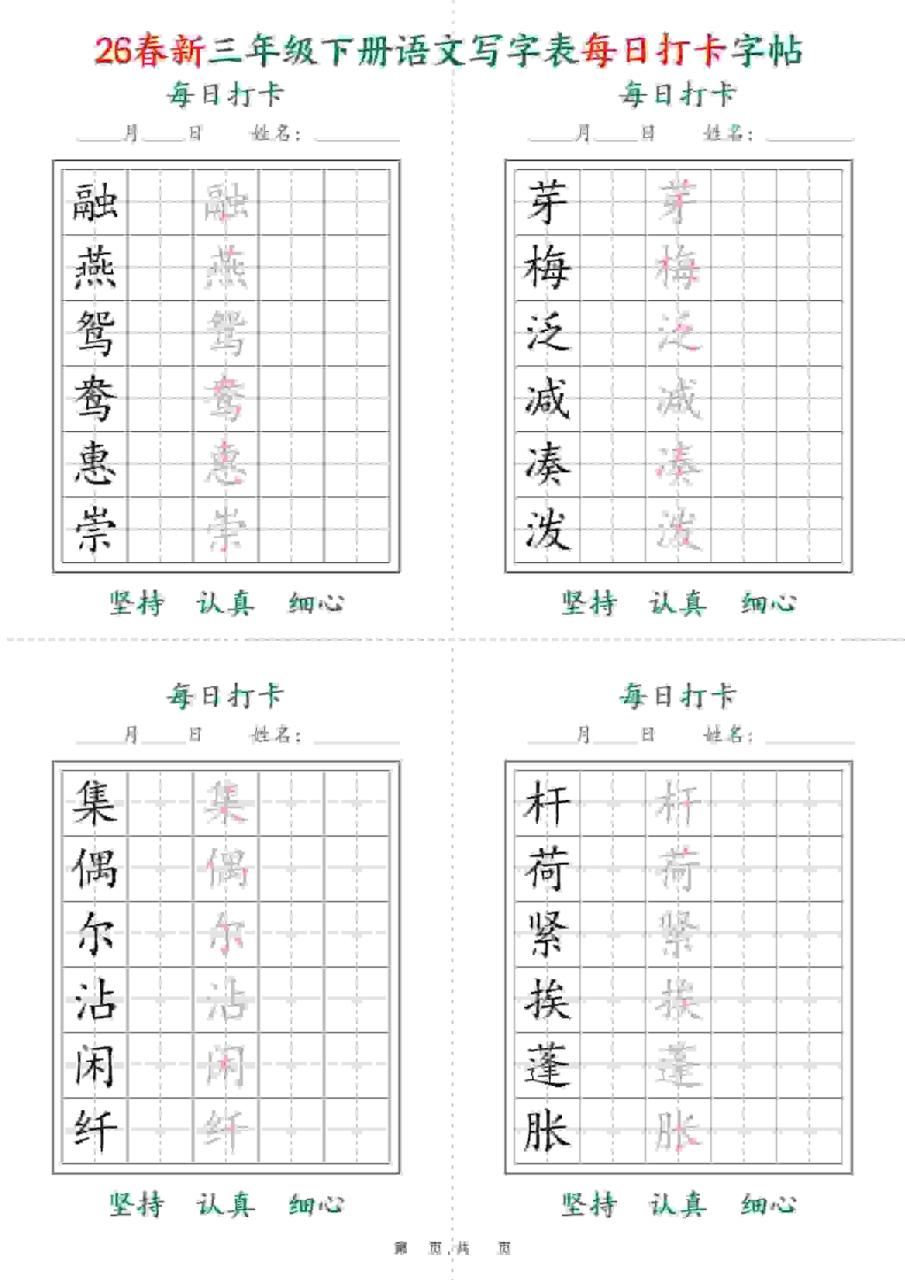 26春新三年级下册语文写字表每日打卡字帖
每日打卡
____月____日 姓名：________
融 融
燕 燕
鸳 鸳
鸯 鸯
惠 惠
崇 崇
坚持 认真 细心
每日打卡
____月____日 姓名：________
芽 芽
梅 梅
泛 泛
减 减
凑 凑
泼 泼
坚持 认真 细心
每日打卡
____月____日 姓名：________
集 集
偶 偶
尔 尔
沾 沾
闲 闲
纤 纤
坚持 认真 细心
每日打卡
____月____日 姓名：________
杆 杆
荷 荷
紧 紧
挨 挨
蓬 蓬
胀 胀
坚持 认真 细心
第 页，共 页